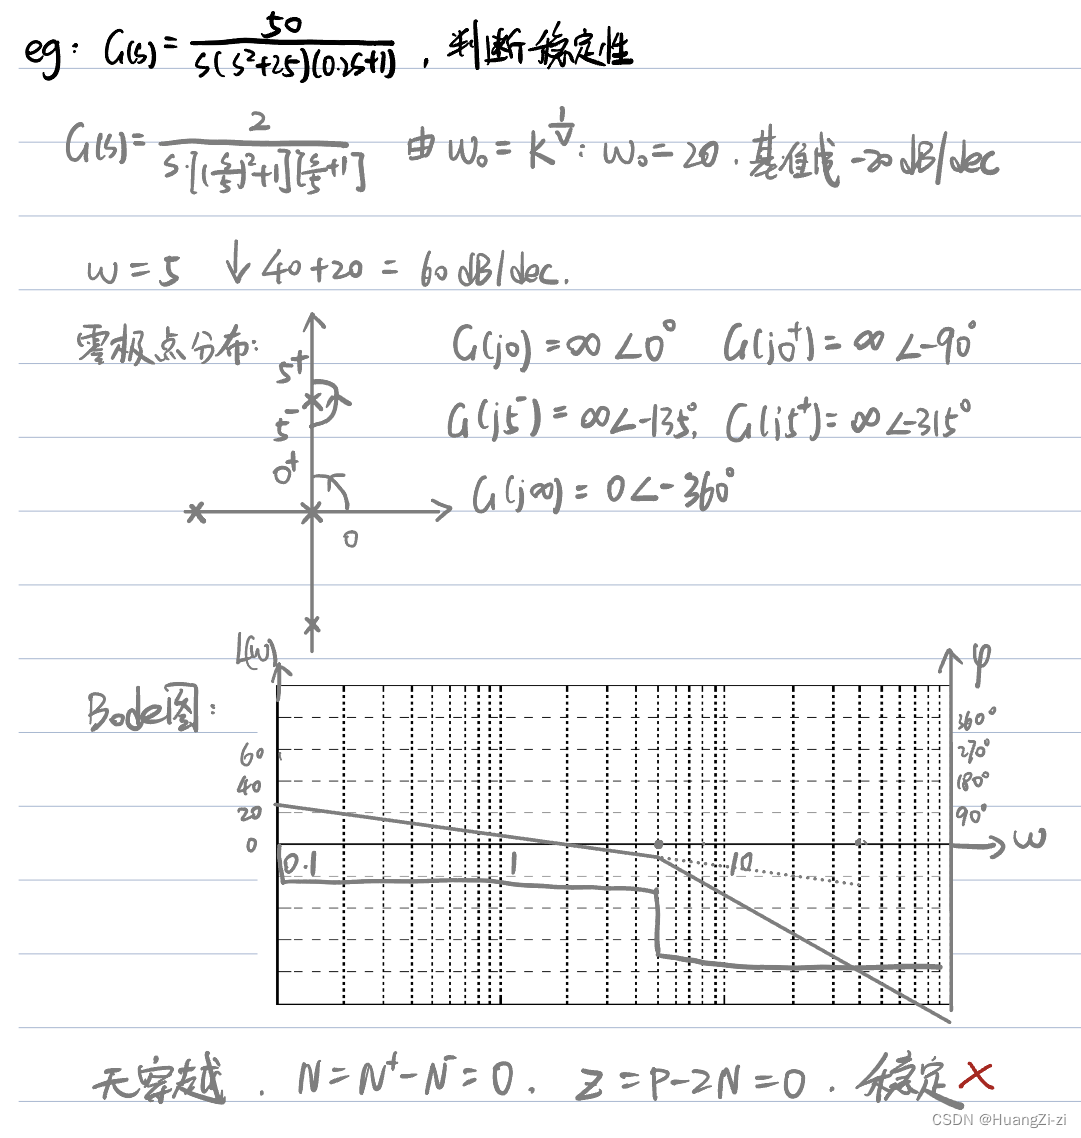 eg: G(s)= 50 / s(s²+25)(0.2s+1) , 判断稳定性
G(s)= 2 / s·[(s/5)²+1][s/5+1] 由 ω₀=K^(1/V): ω₀=20. 基准线 -20dB/dec
ω=5 ↓40+20=60dB/dec.
零极点分布:
G(j0)=∞∠0° G(j0⁺)=∞∠-90°
5⁺
G(j5⁻)=∞∠-135°, G(j5⁺)=∞∠-315°
5⁻
0⁺
G(j∞)=0∠-360°
0
L(ω)
φ
Bode图:
360°
60 270°
40 180°
20 90°
0 ω
0.1 1 10
无穿越. N=N⁺-N⁻=0. Z=P-2N=0. 稳定 ×
CSDN @HuangZi-zi